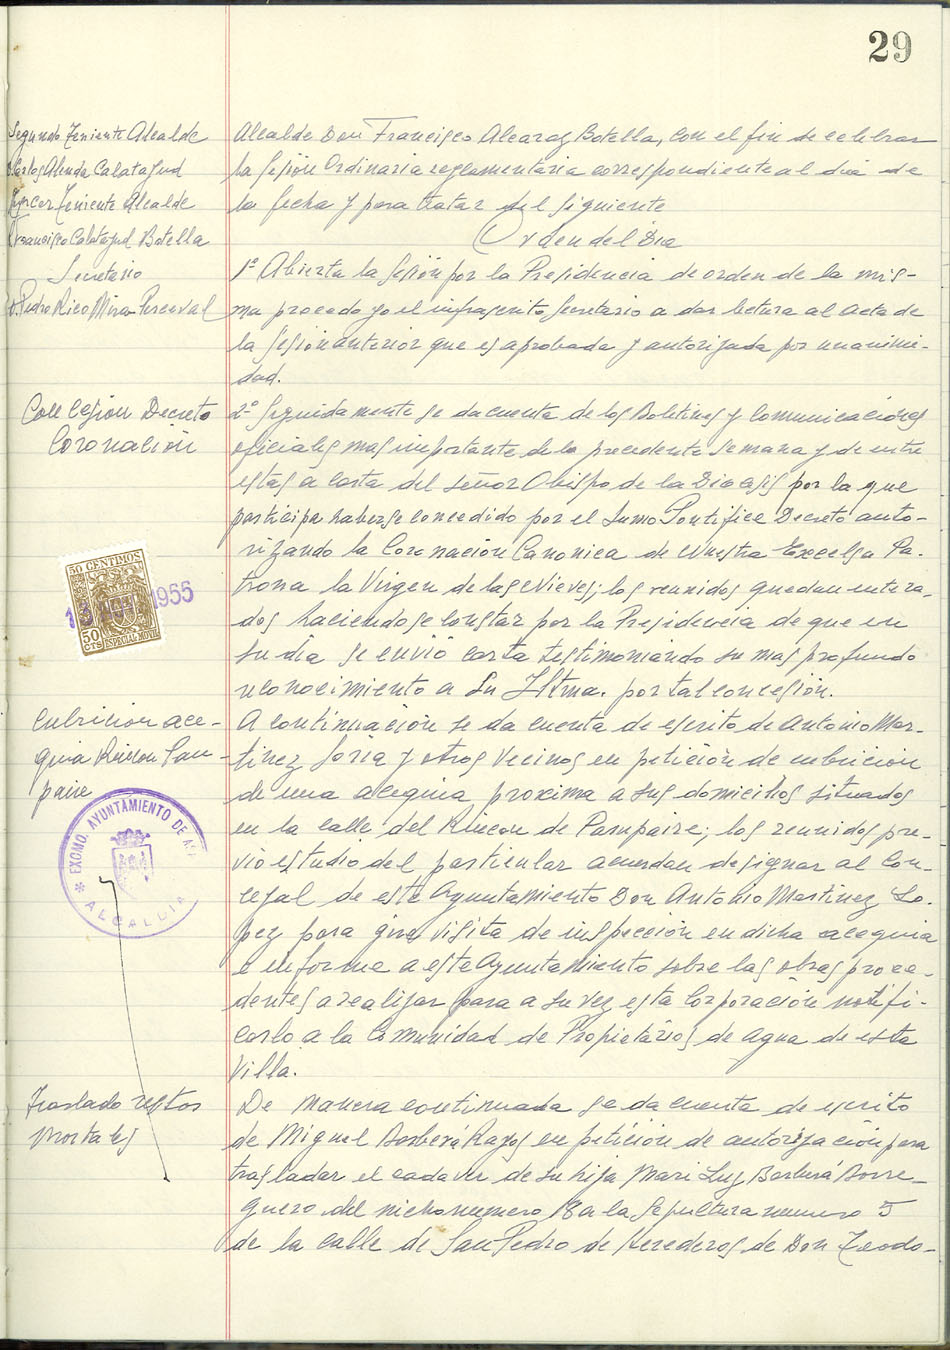 29
Segundo Teniente Alcalde
D. Carlos Alenda Calatayud
Tercer Teniente Alcalde
Francisco Calatayud Botella
Secretario
D. Pedro Rico Mira-Perceval
Alcalde Don Francisco Alcaraz Botella, con el fin de celebrar
la Sesión Ordinaria reglamentaria correspondiente al dia de
la fecha y para tratar del siguiente
Orden del Dia
1º Abierta la Sesión por la Presidencia de orden de la mis-
ma procedo yo el infrascrito Secretario a dar lectura al acta de
la Sesión anterior que es aprobada y autorizada por unanimi-
dad.
Concesión Decreto
Coronación
2º Seguidamente se da cuenta de los Boletines y Comunicaciones
oficiales mas importante de la precedente semana y de entre
estas a carta del señor Obispo de la Diocesis por la que
participa haberse concedido por el Sumo Pontifice Decreto auto-
rizando la Coronación Canonica de Nuestra Excelsa Pa-
trona la Virgen de las Nieves; los reunidos quedan entera-
dos haciendose constar por la Presidencia de que en
su dia se envió carta testimoniando su mas profundo
reconocimiento a Su Iltma. por tal concesión.
50 CENTIMOS
50
CTS
ESPECIAL MOVIL
NOV 1955
Cubrición ace-
quia Rincon Pam-
paire
A continuación se da cuenta de escrito de Antonio Mar-
tinez Soria y otros Vecinos en petición de cubricion
de una acequia proxima a sus domicilios situados
en la calle del Rincon de Pampaire; los reunidos pre-
vio estudio del particular acuerdan designar al Con-
cejal de este Ayuntamiento Don Antonio Martinez Lo-
pez para gire visita de inspección en dicha acequia
e informe a este Ayuntamiento sobre las obras proce-
dentes a realizar para a su vez esta Corporación notifi-
carlo a la Comunidad de Propietarios de agua de esta
Villa.
EXCMO. AYUNTAMIENTO DE
ALCALDIA
Traslado restos
mortales
De manera continuada se da cuenta de escrito
de Miguel Berberá Rayos en petición de autorización para
trasladar el cadaver de su hija Mari Luz Berberá Borre-
guero del nicho numero 18 a la Sepultura numero 5
de la calle de San Pedro de Herederos de Don Teodo-